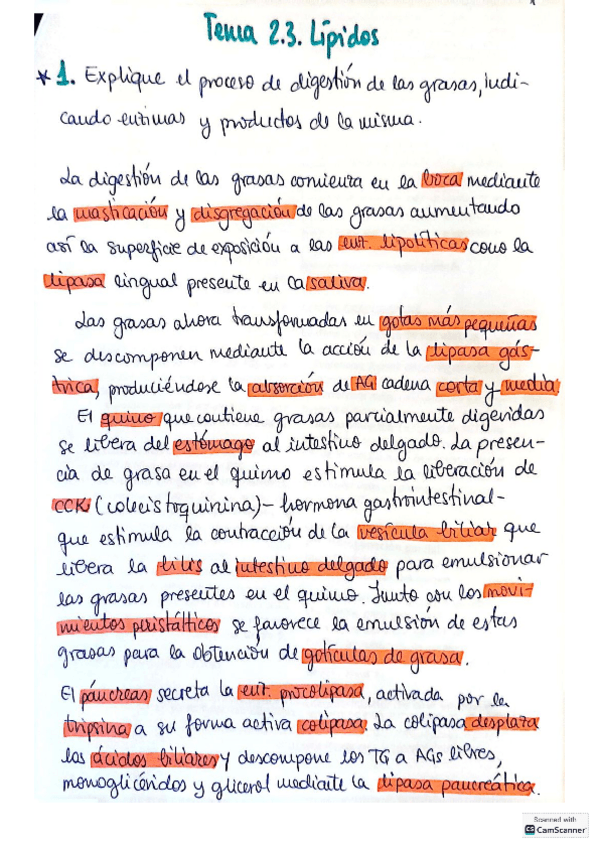 Tema 2.3. Lípidos
* 1. Explique el proceso de digestión de las grasas, indi-
cando enzimas y productos de la misma.
La digestión de las grasas comienza en la boca mediante
la masticación y disgregación de las grasas aumentando
así la superficie de exposición a las enz. lipolíticas como la
lipasa lingual presente en la saliva.
Las grasas ahora transformadas en gotas más pequeñas
se descomponen mediante la acción de la lipasa gás-
trica, produciéndose la absorción de AG cadena corta y media.
El quimo que contiene grasas parcialmente digeridas
se libera del estómago al intestino delgado. La presen-
cia de grasa en el quimo estimula la liberación de
CCK (colecistoquinina) - hormona gastrointestinal -
que estimula la contracción de la vesícula biliar que
libera la bilis al intestino delgado para emulsionar
las grasas presentes en el quimo. Junto con los movi-
mientos peristálticos se favorece la emulsión de estas
grasas para la obtención de gotículas de grasa.
El páncreas secreta la enz. procolipasa, activada por la
tripsina a su forma activa colipasa. La colipasa desplaza
los ácidos biliares y descompone los TG a AGs libres,
monoglicéridos y glicerol mediante la lipasa pancreática.
Scanned with
CS CamScanner